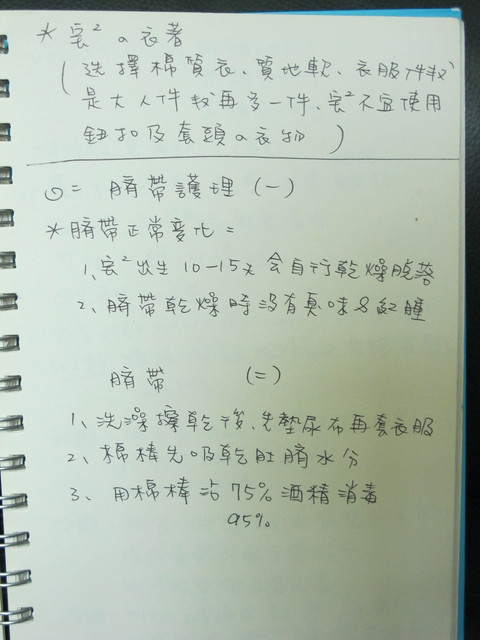 * 宝² a 衣著
(選擇棉質衣、質地軟、衣服件数
是大人件数再多一件、宝²不宜使用
鈕扣及套頭a衣物)
○= 臍帶護理 (一)
*臍帶正常變化=
1、宝²出生10-15天會自行乾燥脫落
2、臍帶乾燥時沒有臭味&紅腫
臍帶 (二)
1、洗澡擦乾後、先墊尿布再套衣服
2、棉棒先吸乾肚臍水分
3、用棉棒沾75%酒精消毒
95%